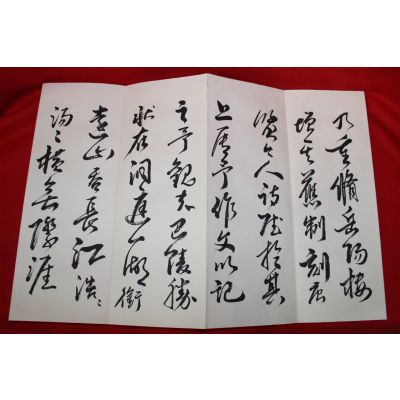 乃重脩岳陽樓
増其舊制刻唐
賢今人詩賦於其
上屬予作文以記
之予觀夫巴陵勝
狀在洞庭一湖銜
遠山吞長江浩〻
湯〻橫無際涯